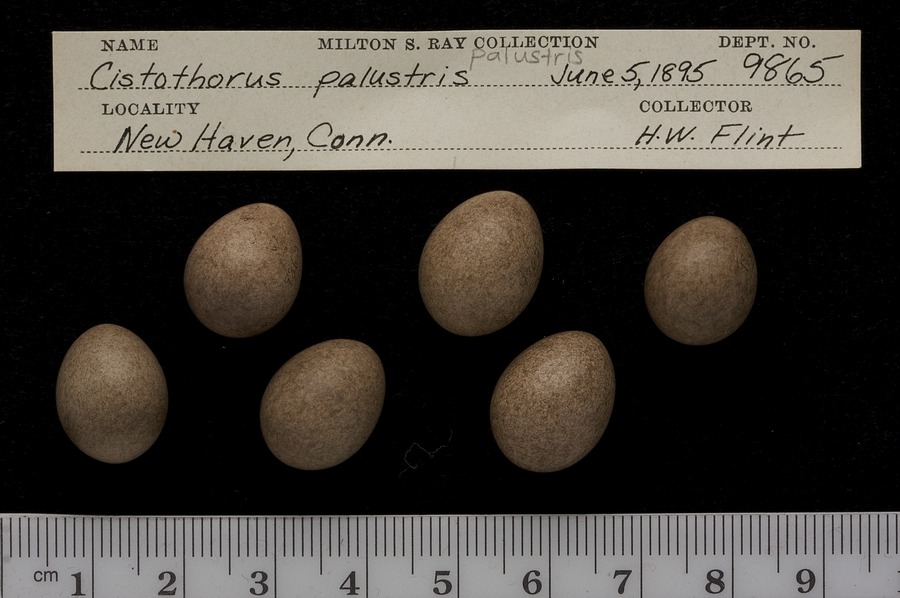 NAME MILTON S. RAY COLLECTION DEPT. NO.
palustris
Cistothorus palustris June 5, 1895 9865
LOCALITY COLLECTOR
New Haven, Conn. H.W. Flint
cm 1 2 3 4 5 6 7 8 9